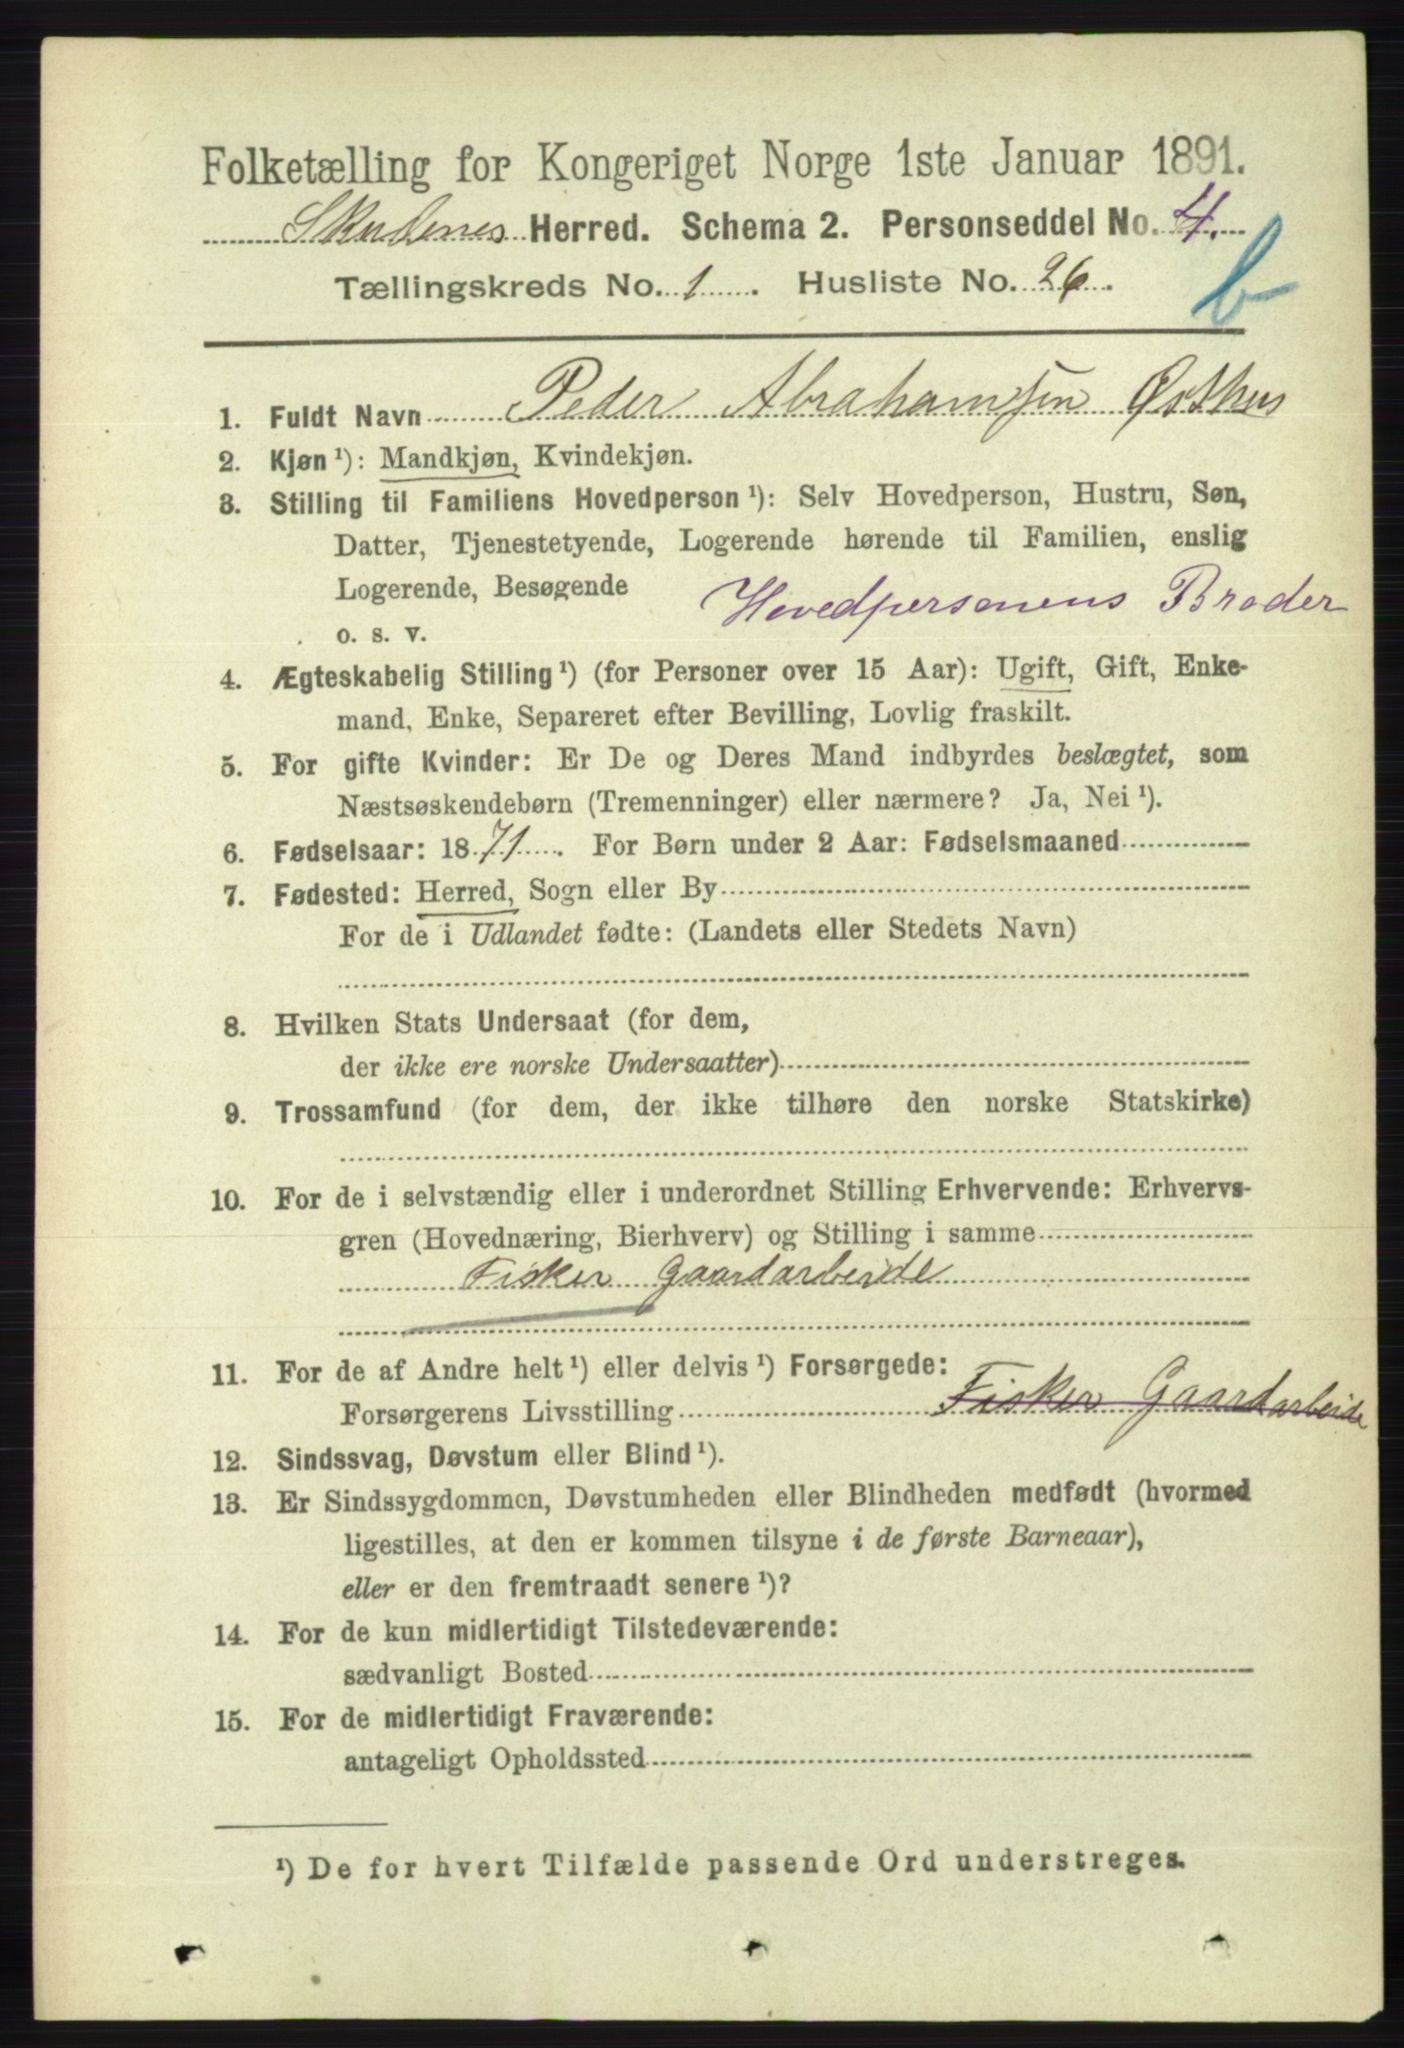 Folketælling for Kongeriget Norge 1ste Januar 1891.
Skudenes Herred. Schema 2. Personseddel No. 4.
Tællingskreds No. 1. Husliste No. 26.
b
1. Fuldt Navn Peder Abrahamsen Østhus
2. Kjøn ¹): Mandkjøn, Kvindekjøn.
3. Stilling til Familiens Hovedperson ¹): Selv Hovedperson, Hustru, Søn,
Datter, Tjenestetyende, Logerende hørende til Familien, enslig
Logerende, Besøgende Hovedpersonens Broder
o. s. v.
4. Ægteskabelig Stilling ¹) (for Personer over 15 Aar): Ugift, Gift, Enke-
mand, Enke, Separeret efter Bevilling, Lovlig fraskilt.
5. For gifte Kvinder: Er De og Deres Mand indbyrdes beslægtet, som
Næstsøskendebørn (Tremenninger) eller nærmere? Ja, Nei ¹).
6. Fødselsaar: 1871. For Børn under 2 Aar: Fødselsmaaned
7. Fødested: Herred, Sogn eller By
For de i Udlandet fødte: (Landets eller Stedets Navn)
8. Hvilken Stats Undersaat (for dem,
der ikke ere norske Undersaatter)
9. Trossamfund (for dem, der ikke tilhøre den norske Statskirke)
10. For de i selvstændig eller i underordnet Stilling Erhvervende: Erhvervs-
gren (Hovednæring, Bierhverv) og Stilling i samme
Fisker Gaardarbeide
11. For de af Andre helt ¹) eller delvis ¹) Forsørgede:
Forsørgerens Livsstilling Fisker Gaardarbeide
12. Sindssvag, Døvstum eller Blind ¹).
13. Er Sindssygdommen, Døvstumheden eller Blindheden medfødt (hvormed
ligestilles, at den er kommen tilsyne i de første Barneaar),
eller er den fremtraadt senere ¹)?
14. For de kun midlertidigt Tilstedeværende:
sædvanligt Bosted
15. For de midlertidigt Fraværende:
antageligt Opholdssted
¹) De for hvert Tilfælde passende Ord understreges.